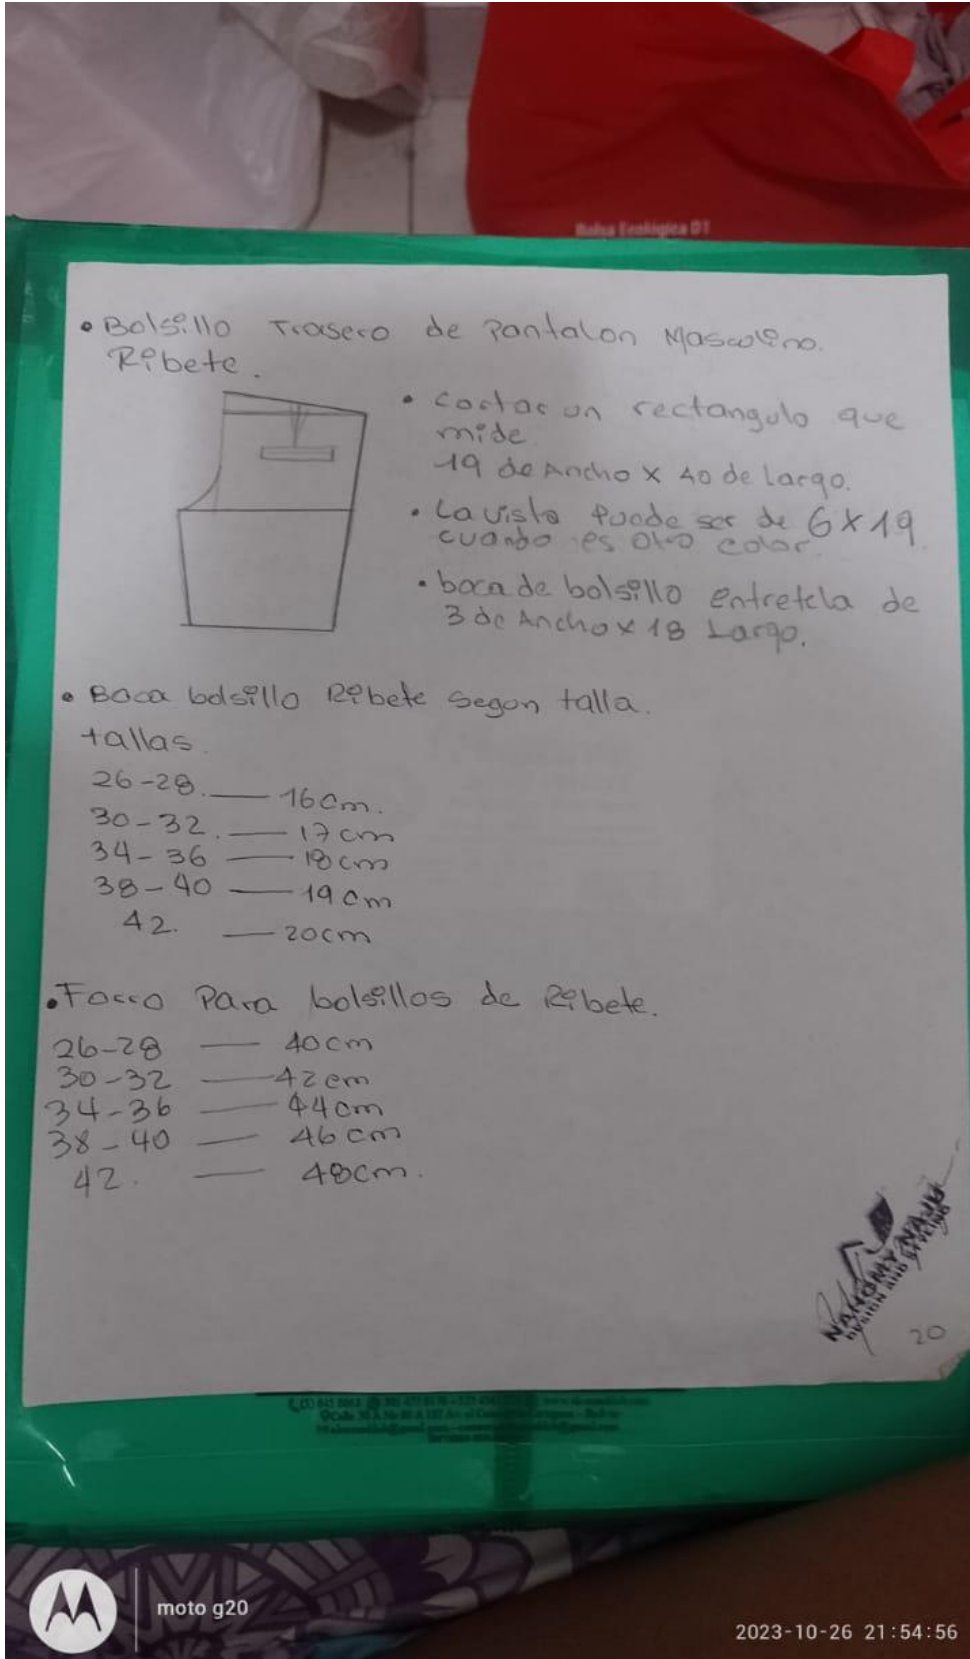 Bolsa Ecológica D1
• Bolsillo Trasero de Pantalon Masculino.
Ribete.
• cortar un rectangulo que
mide
19 de Ancho x 40 de Largo.
• La vista puede ser de 6x19
cuando es otro color.
• boca de bolsillo entretela de
3 de Ancho x 18 Largo.
• Boca bolsillo Ribete segon talla.
tallas.
26-28. — 16cm.
30-32. — 17cm
34-36 — 18cm
38-40 — 19cm
42. — 20cm
• Forro Para bolsillos de Ribete.
26-28 — 40cm
30-32 — 42cm
34-36 — 44cm
38-40 — 46cm
42. — 48cm.
NAHOMY NAJU
DESIGN AND STYLING
20
moto g20
2023-10-26 21:54:56